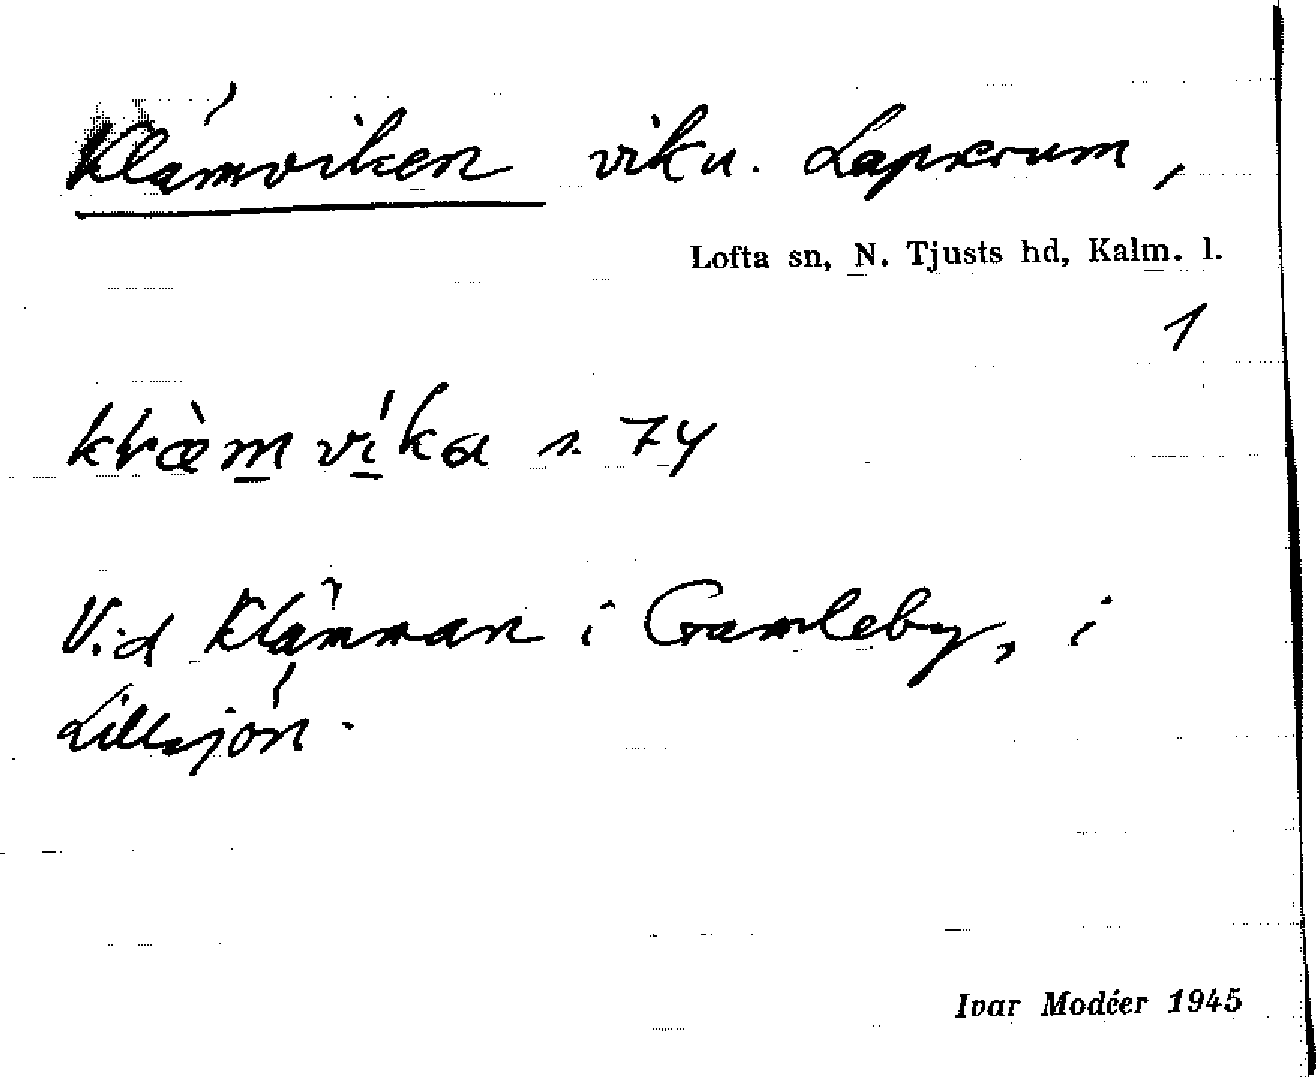 Klämviken vik u. Lapserum,
Lofta sn, N. Tjusts hd, Kalm. l.
1
kræ̀mvíka s. 74
Vid Klämman i Gamleby, i
Lillsjön.
Ivar Modéer 1945